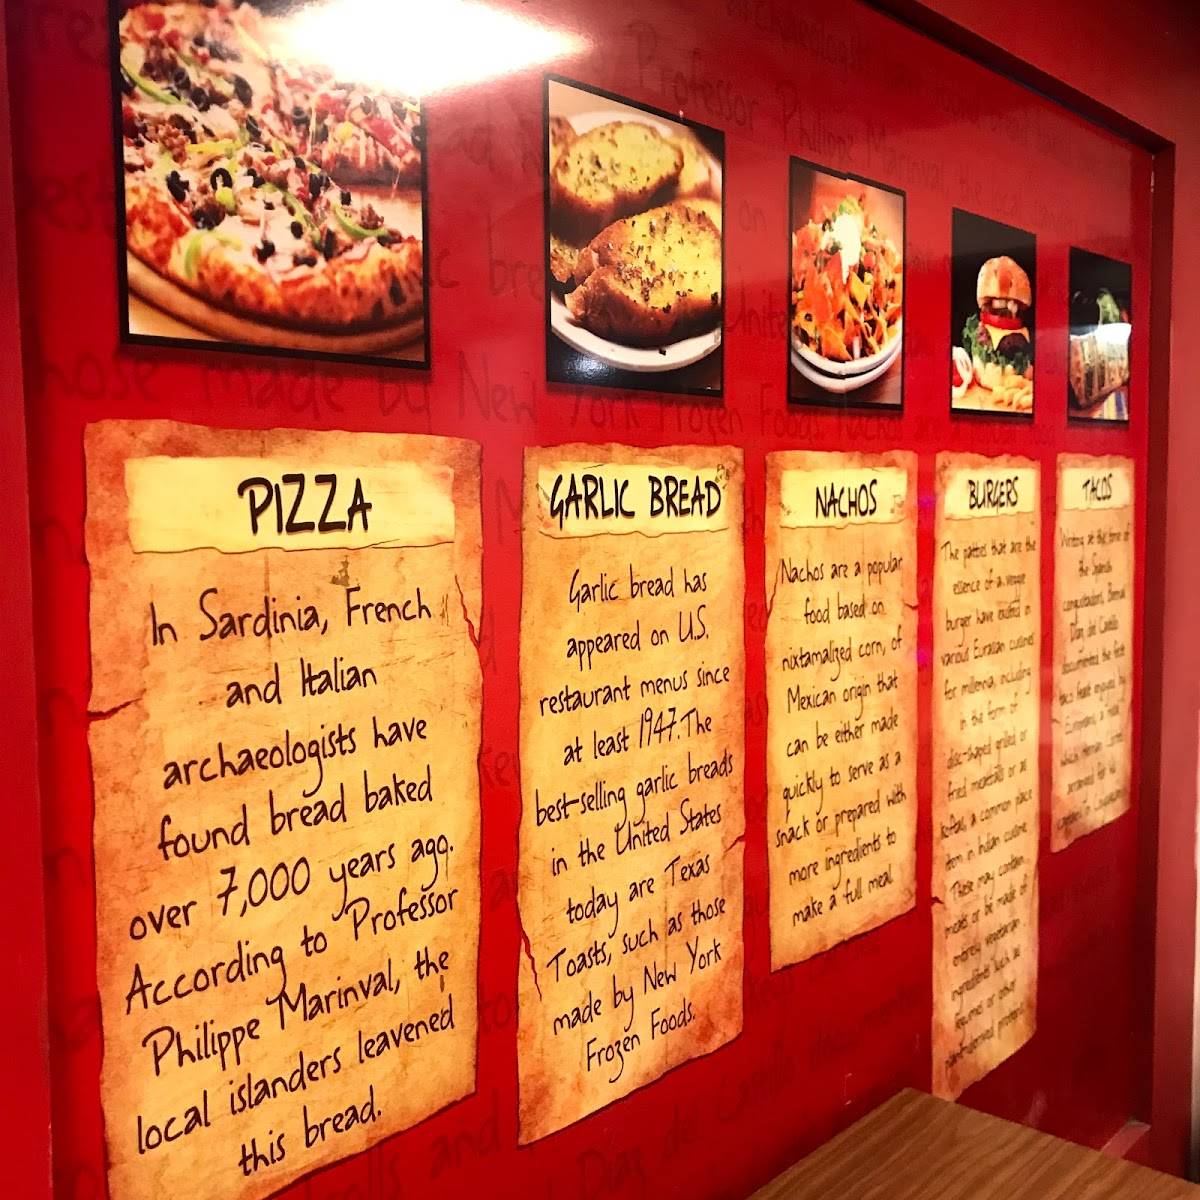 PIZZA
In Sardinia, French
and Italian
archaeologists have
found bread baked
over 7,000 years ago.
According to Professor
Philippe Marinval, the
local islanders leavened
this bread.
GARLIC BREAD
Garlic bread has
appeared on U.S.
restaurant menus since
at least 1947. The
best-selling garlic breads
in the United States
today are Texas
Toasts, such as those
made by New York
Frozen Foods.
NACHOS
Nachos are a popular
food based on
nixtamalized corn, of
Mexican origin that
can be either made
quickly to serve as a
snack or prepared with
more ingredients to
make a full meal.
BURGERS
The patties that are the
essence of a veggie
burger have existed in
various Eurasian cuisines
for millennia, including
in the form of
disc-shaped grilled or
fried meatballs or as
koftas, a common place
item in Indian cuisine.
These may contain
meats or be made of
entirely vegetarian
ingredients such as
legumes or other
plant-derived proteins.
TACOS
Writing at the time of
the Spanish
conquistadors, Bernal
Díaz del Castillo
documented the first
taco feast enjoyed by
Europeans, a meal
which Hernan Cortés
arranged for his
captains in
Professor Philippe Marinval, the
those made by New York Frozen Foods. Nachos are a